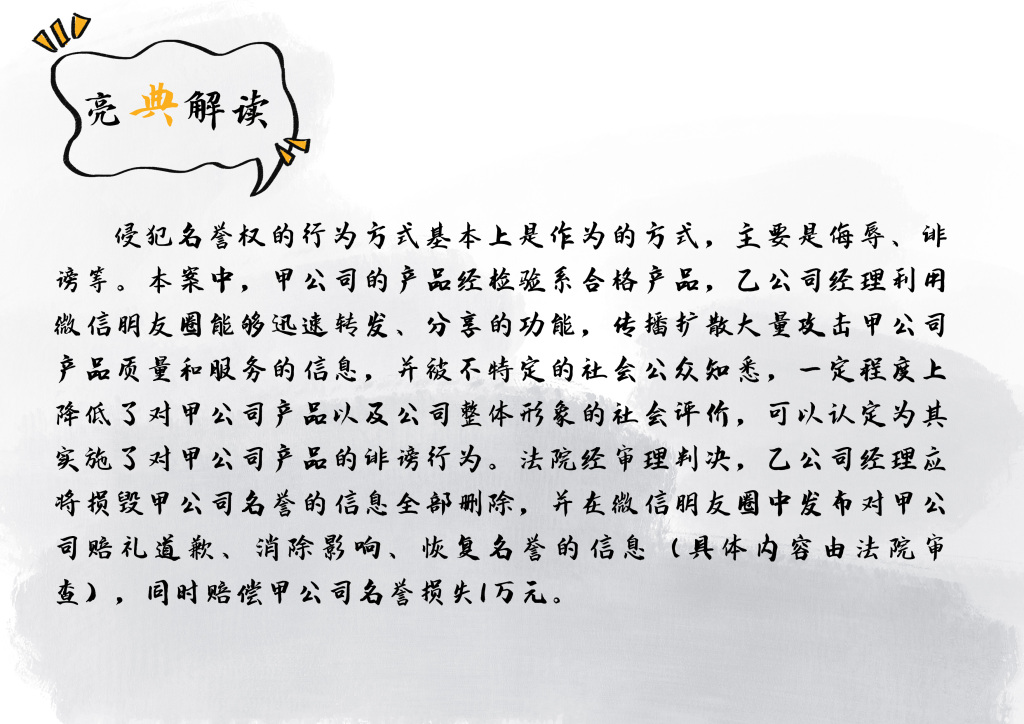 亮典解读
侵犯名誉权的行为方式基本上是作为的方式，主要是侮辱、诽
谤等。本案中，甲公司的产品经检验系合格产品，乙公司经理利用
微信朋友圈能够迅速转发、分享的功能，传播扩散大量攻击甲公司
产品质量和服务的信息，并被不特定的社会公众知悉，一定程度上
降低了对甲公司产品以及公司整体形象的社会评价，可以认定为其
实施了对甲公司产品的诽谤行为。法院经审理判决，乙公司经理应
将损毁甲公司名誉的信息全部删除，并在微信朋友圈中发布对甲公
司赔礼道歉、消除影响、恢复名誉的信息（具体内容由法院审
查），同时赔偿甲公司名誉损失1万元。